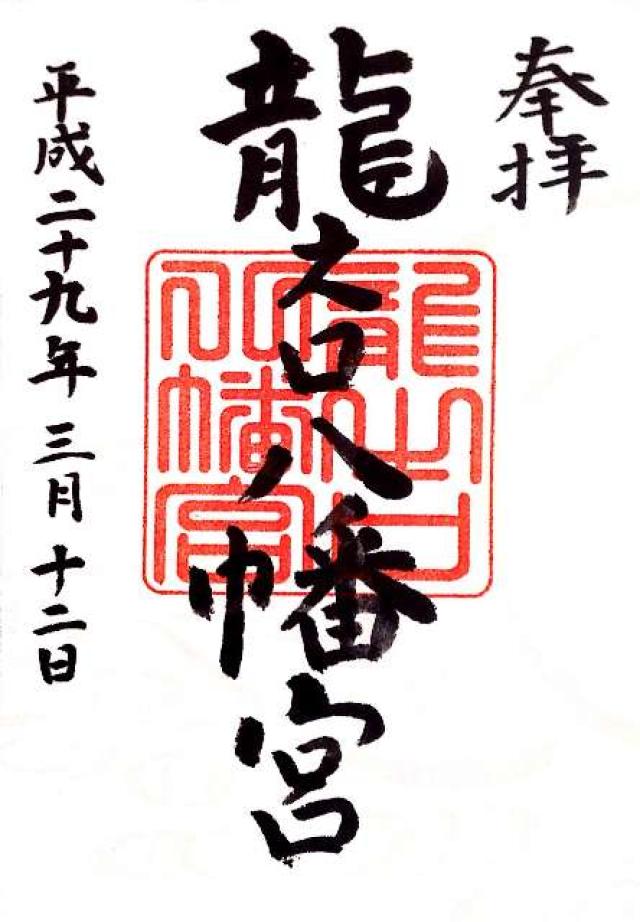 奉拝
龍之口八幡宮
龍之口
八幡宮
平成二十九年三月十二日